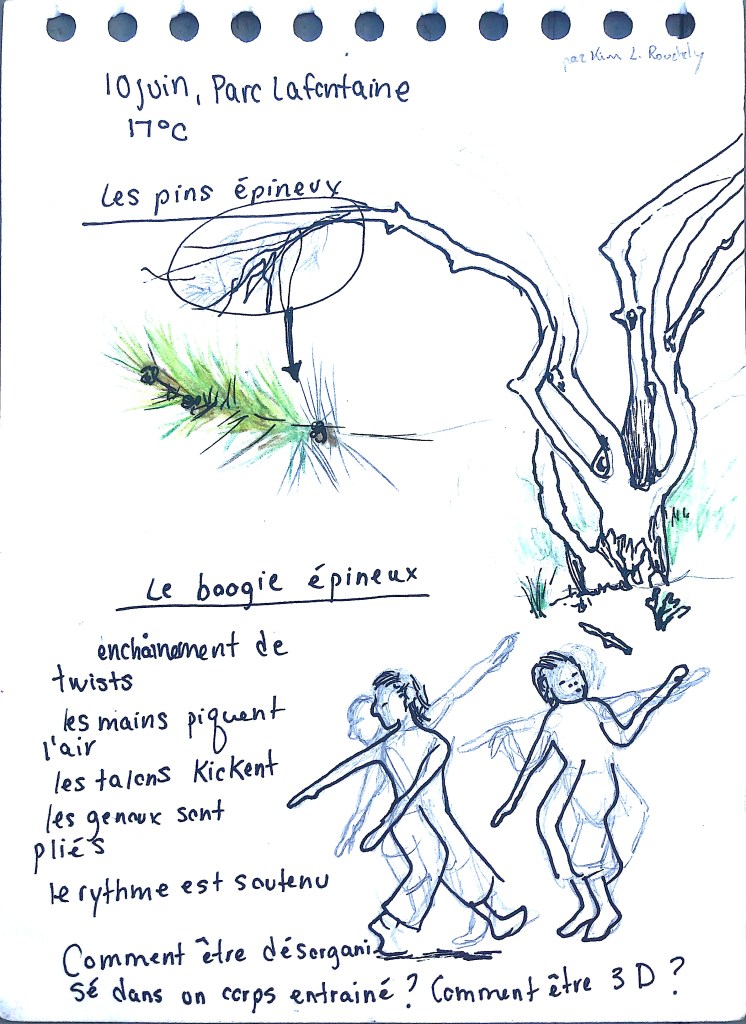 par Kim L. Rouchdy
10 juin, Parc Lafontaine
17°C
Les pins épineux
Le boogie épineux
enchaînement de
twists
les mains piquent
l'air
les talons kickent
les genoux sont
pliés
le rythme est soutenu
Comment être désorgani
sé dans un corps entrainé ? Comment être 3D ?